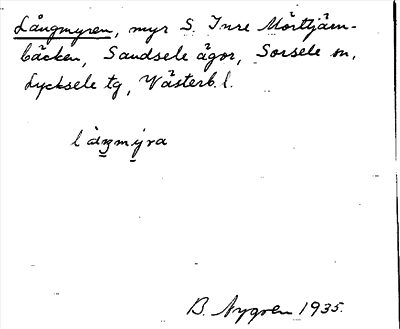 Långmyren, myr S. Inre Mörttjärn-
bäcken, Sandsele ägor, Sorsele sn,
Lycksele tg, Västerb. l.
lăŋmy̆ra
B. Nygren 1935.